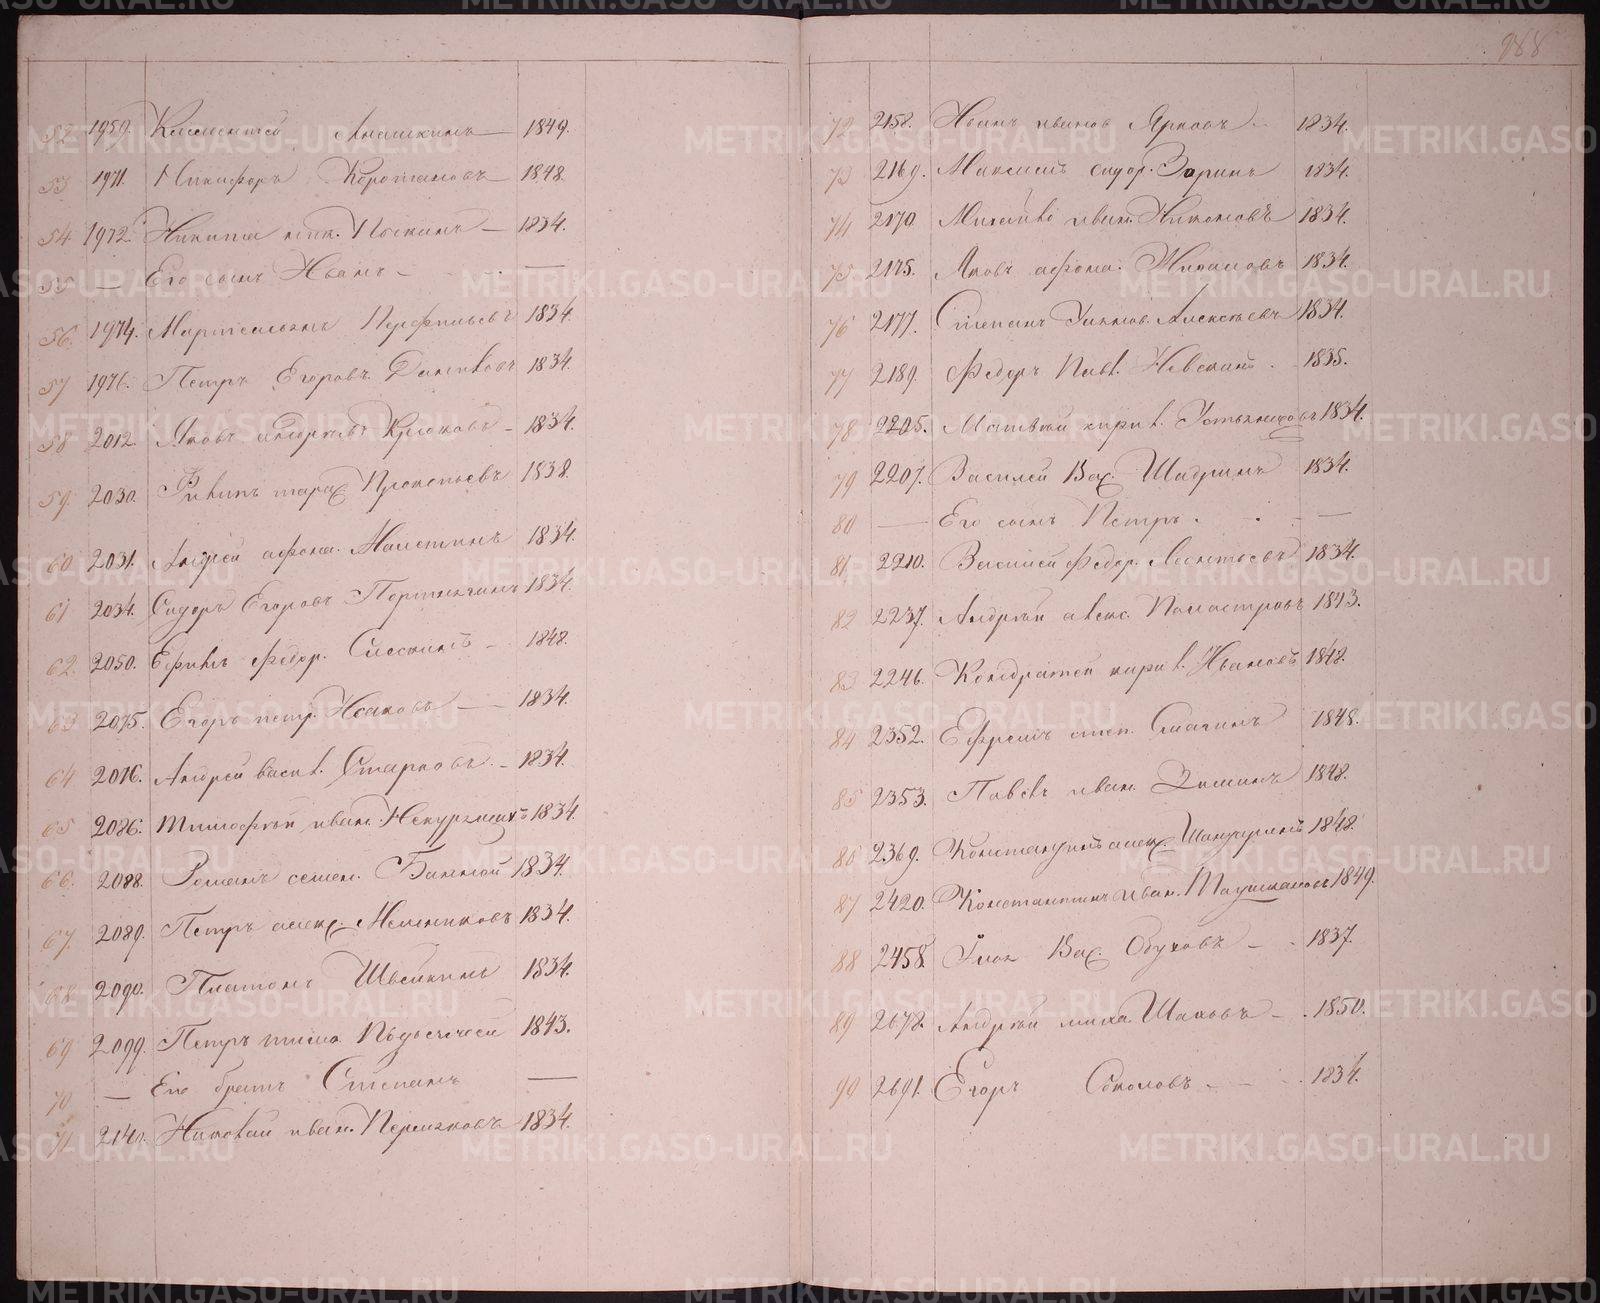 988
52 1959. Климентей Анашкинъ — 1849.
53 1971. Никифоръ Коротановъ — 1848.
54 1972. Никита ник. Пескинъ — 1834.
55 — Его сынъ Иванъ — —
56. 1974. Мартемьянъ Перфильевъ 1834.
57 1976. Петръ Егоровъ Даниловъ 1834.
58 2012. Яковъ Крюковъ — 1834.
59. 2030. Филипъ тарас. Прокопьевъ 1838.
60 2031. Андрей афона. Малетинъ 1834.
61 2034. Сидоръ Егоровъ 1834.
62. 2050. Ефимъ федор. 1848.
63 2075. Егоръ петр. Исаковъ — 1834.
64 2076. Андрей васил. Старковъ — 1834.
65 2086. Тимофей иван. 1834.
66. 2088. Романъ семен. Банной 1834.
67. 2089. Петръ алекс. Мельниковъ 1834.
68. 2090. Платонъ Швейкинъ 1834.
69 2099. Петръ тимо. 1843.
70 — Его братъ Степанъ —
71 2140. Николай иван. Пермяковъ 1834.
72 2158. Иванъ иванов Ярковъ — 1834.
73 2169. Максимъ сидор. Зоринъ 1834.
74 2170. Михайло иван. Никоновъ 1834.
75 2175. Яковъ афона. 1834.
76 2177. Степанъ Алексеевъ 1834.
77 2189. Федоръ Павл. Невский 1835.
78 2205. Матвей кирил. Устьянцовъ 1834.
79 2207. Василей Вас. Шадринъ 1834.
80 — Его сынъ Петръ. —
81 2210. Василей Федор. Леонтьевъ 1834.
82 2237. Андрей алекс. Паластровъ 1843.
83 2246. Кондратей кирил. Ивановъ 1848.
84 2352. Ефремъ степ. Смагинъ 1848.
85 2353. Павелъ иван. Зиминъ 1848.
86 2369. Константинъ алекс. 1848.
87 2420. Константинъ иван. Таушкановъ 1849.
88 2458. Вас. Обуховъ — 1837.
89 2678. Андрей миха. Шаховъ — 1850.
90 2691. Егоръ Соколовъ — 1834.